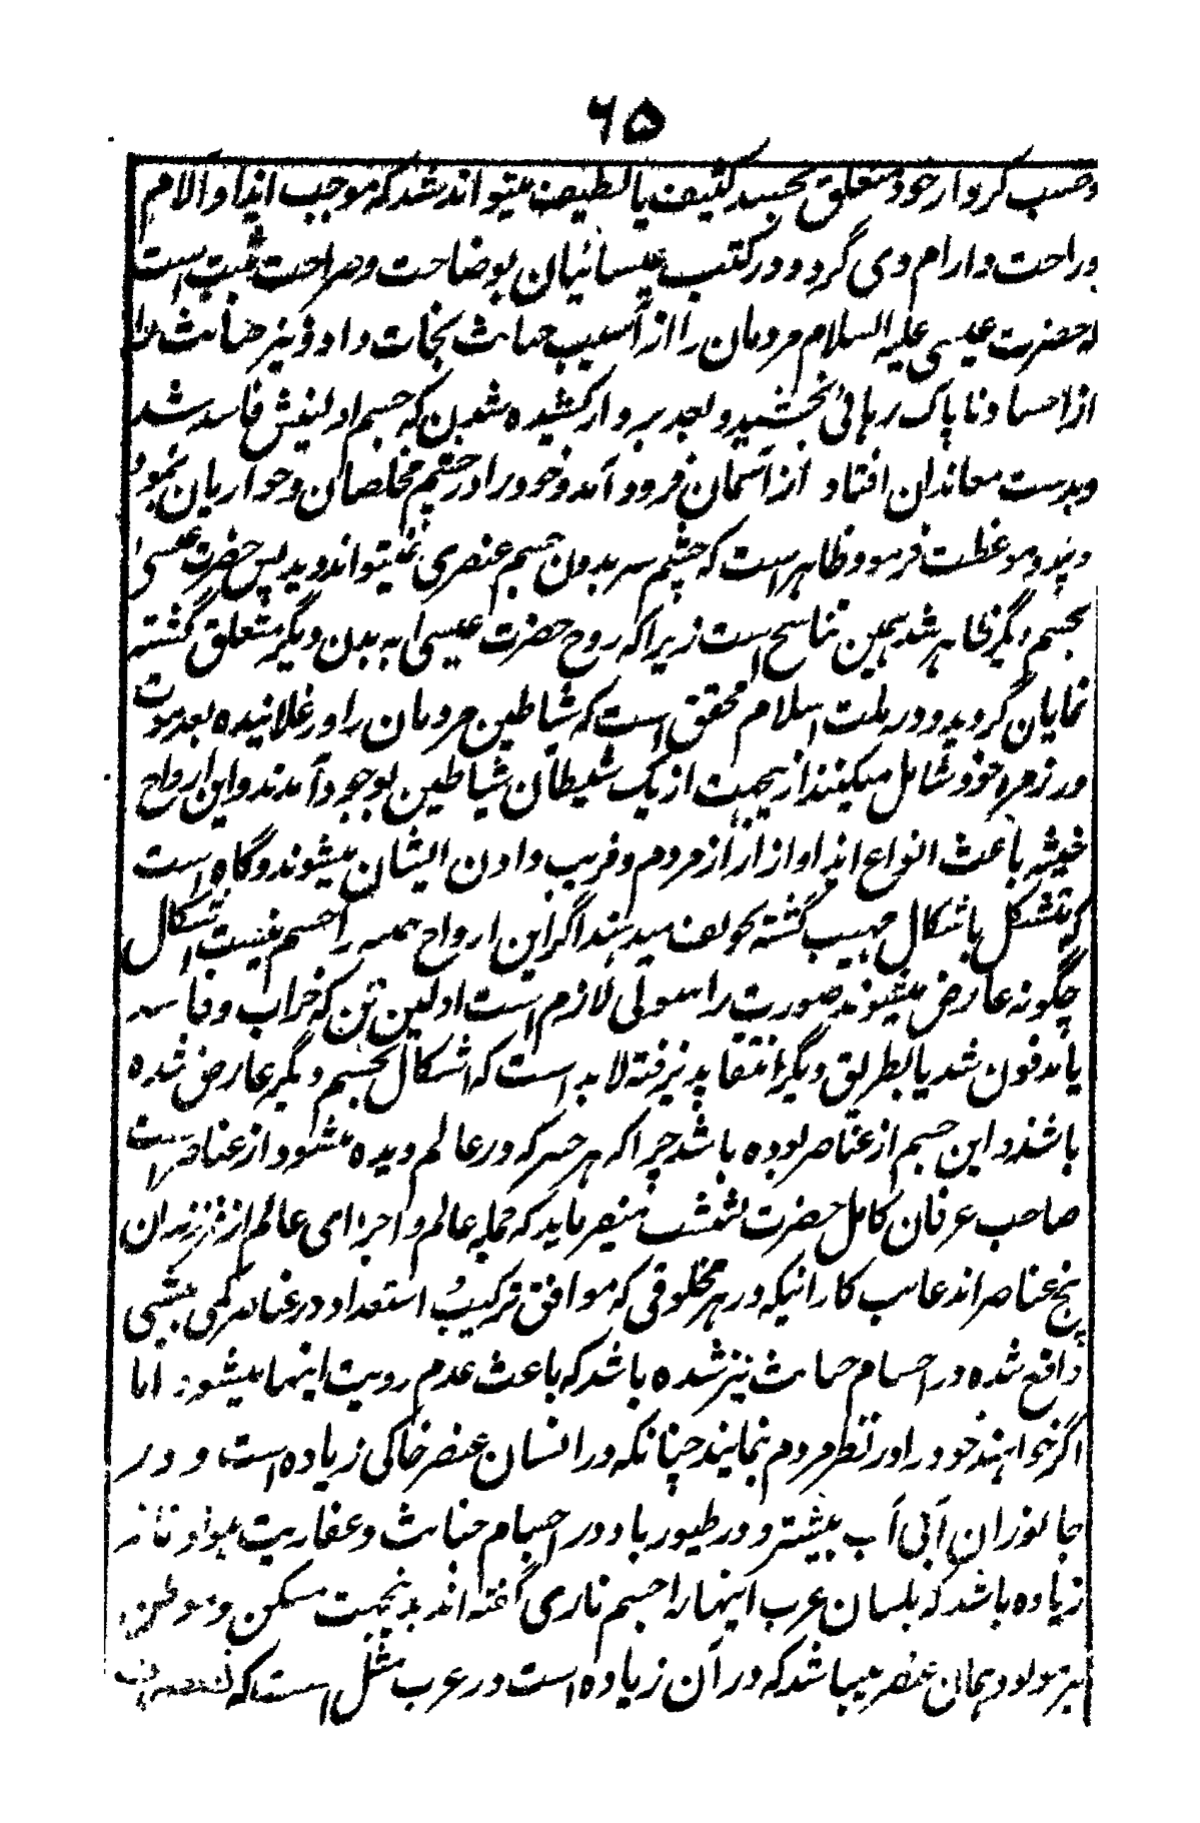 ۶۵
وحسب کردار خود متعلق بجسد کثیف یا لطیف میتواند شد که موجب ایذا و آلام
وراحت وارام وی گردد ودر کتب عیسائیان بوضاحت وصراحت ثبت است
که حضرت عیسی علیه السلام مردمان را از آسیب جناث نجات داد ونیز جناث را
از اجساد ناپاک رهائی بخشید وبعد بر دار کشیده شدن که جسم اولینش فاسد شد
وبدست معاندان افتاد از آسمان فرود آمد وخود را در چشم مخلصان وحواریان نمود
وپند وموعظت فرمود وظاهر است که چشم سر بدون جسم عنصری نمیتواند دید پس حضرت عیسی
بجسم دیگر ظاهر شد همین تناسخ است زیرا که روح حضرت عیسی به بدن دیگر متعلق گشته
نمایان گردید ودر ملت اسلام محقق است که شاطین مردمان را ورغلانیده بعد موت
در زمره خود شامل میکنند ازیجهت از یک شیطان شیاطین بوجود آمدند واین ارواح
خبیثه باعث انواع ایذا وازار از مردم وفریب دادن ایشان میشوند وگاه است
که بتشکل باشکال مهیب گشته تخویف میدهند اگر این ارواح همه را جسم نیست اشکال
چگونه عارض میشوند صورت را هیولی لازم است اولین تن که خراب وفاسد
یا مدفون شد یا بطریق دیگر انتقا پذیرفته لابد است که اشکال بجسم دیگر عارض شده
باشد واین جسم از عناصر بوده باشد چرا که هر چه که در عالم دیده میشود از عناصر است
صاحب عرفان کامل حضرت بششت میفرماید که جمله عالم و اجزای عالم از فرزندان
پنج عناصر اند عاب کار انیکه در هر مخلوقی که موافق ترکیب استعداد در عناصر کمی بیشی
واقع شده در اجسام جناث نیز شده باشد که باعث عدم رویت اینها میشود اما
اگر خواهند خود را در نظر مردم نمایند چنانکه در انسان عنصر خاکی زیاده است و در
جانوران آبی آب بیشتر و در طیور باد در اجسام جناث وعفاریت هوا و نار
زیاده باشد که بلسان عرب اینها را جسم ناری گفته اند بدینجهت مسکن وموطن
نیز مولود همان عنصر میباشد که در آن زیاده است در عرب مثل است که